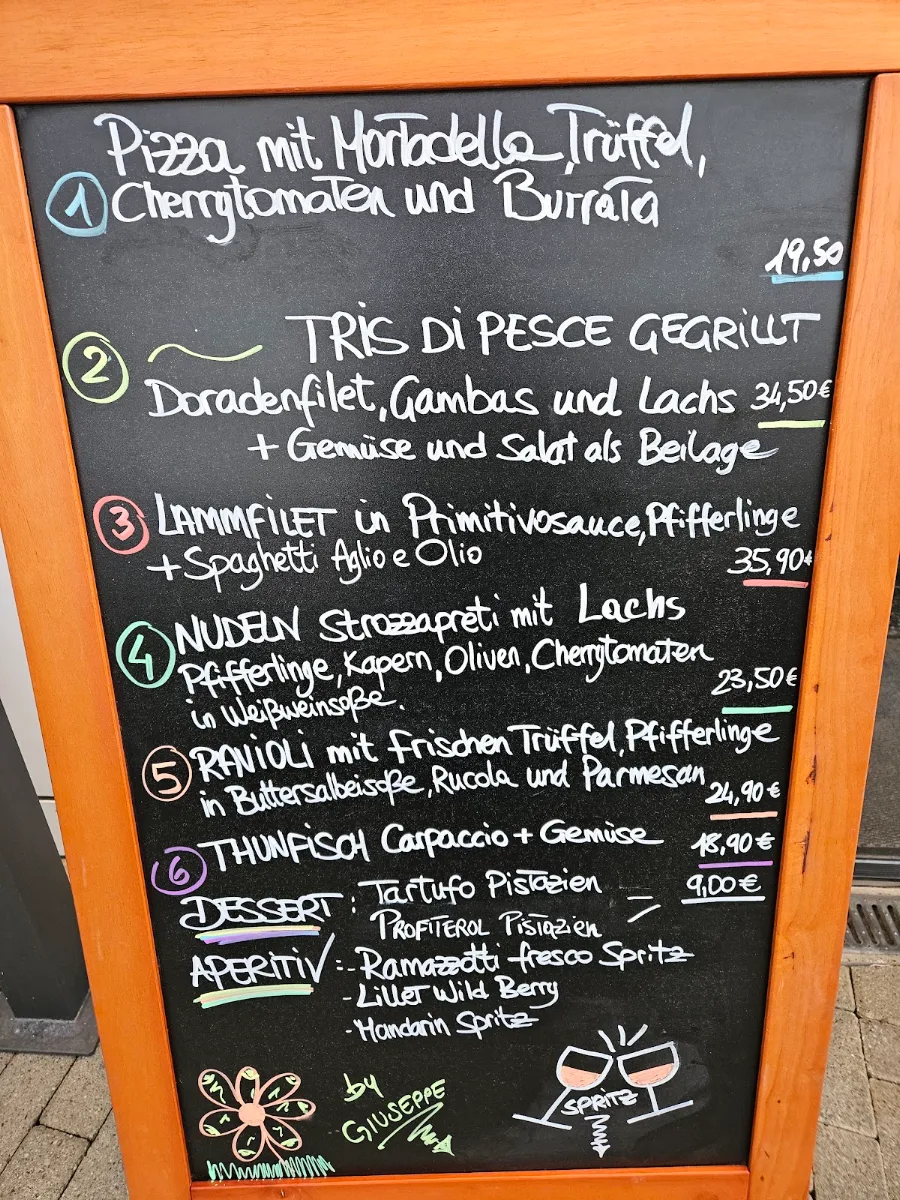 Pizza mit Mortadella, Trüffel,
1 Cherrytomaten und Burrata
19,50
2 TRIS Di PESCE GEGRiLLT
Doradenfilet, Gambas und Lachs 34,50€
+ Gemüse und Salat als Beilage
3 LAMMFiLET in Primitivosauce, Pfifferlinge
+ Spaghetti Aglio e Olio 35,90€
4 NUDELN Strozzapreti mit Lachs
Pfifferlinge, Kapern, Oliven, Cherrytomaten
23,50€
in Weißweinsoße.
5 RAViOLi mit frischen Trüffel, Pfifferlinge
in Buttersalbeisoße, Rucola und Parmesan
24,90€
6 THUNFiSCH Carpaccio + Gemüse 18,90€
DESSERT : Tartufo Pistazien = 9,00€
PROFiTEROL PiSTAZiEN
APERiTiV :- Ramazzotti fresco Spritz
- LiLLET Wild Berry
- Mandarin Spritz
by
GIUSEPPE
SPRiTZ